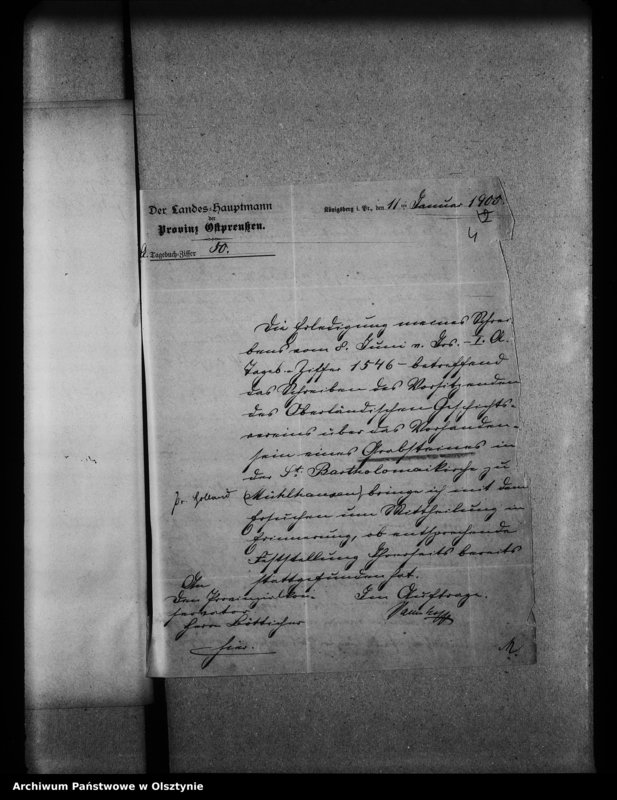 Der Landes-Hauptmann
der
Provinz Ostpreußen.
Tagebuch-Ziffer 50.
Königsberg i. Pr., den 11ten Januar 1900.
4
Die Erledigung meines Schrei-
bens vom 8. Juni v. Jrs. – I. A.
Tageb.-Ziffer 1546 – betreffend
das Schreiben des Vorsitzenden
des Oberländischen Geschichts-
vereins über das Vorhanden-
sein eines Grabsteines in
der St. Bartholomaikirche zu
Pr. Holland
(Mühlhausen) bringe ich mit dem
Ersuchen um Mittheilung in
Erinnerung, ob entsprechende
Feststellung Ihrerseits bereits
stattgefunden hat.
An
den Provinzialkon-
servator
Herrn Bötticher
hier.
Im Auftrage.
Archiwum Państwowe w Olsztynie